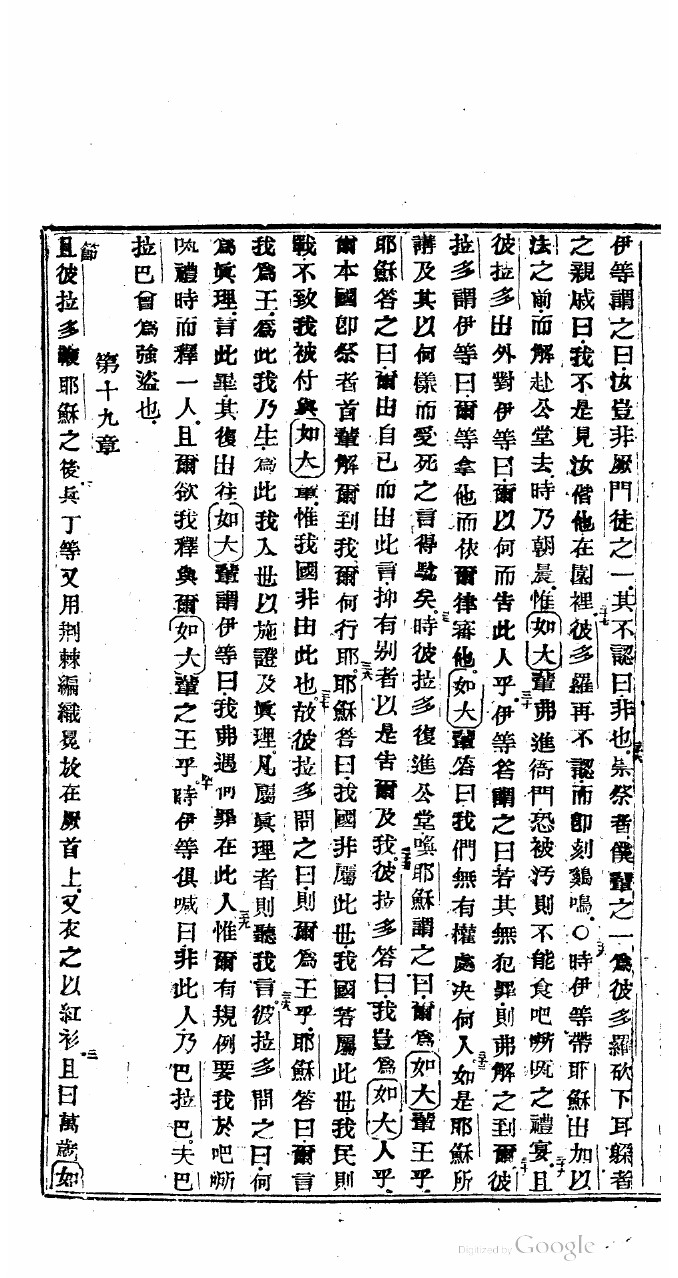 伊等謂之曰汝豈非厥門徒之一其不認曰非也祟祭者僕輩之一爲彼多羅砍下耳躲者
之親戚曰我不是見汝偕他在園裡彼多羅再不認而卽刻鷄鳴○時伊等帶耶穌出加以
法之前而解赴公堂去時乃朝晨惟如大輩弗進衙門恐被汚則不能食吧㗭㖿之禮宴且
彼拉多出外對伊等曰爾以何而告此人乎伊等答謂之曰若其無犯罪則弗解之到爾彼
拉多謂伊等曰爾等拿他而依爾律審他如大輩答曰我們無有權處决何人如是耶穌所
講及其以何樣而受死之言得騐矣時彼拉多復進公堂喚耶穌謂之曰爾爲如大輩王乎
耶穌答之曰爾由自已而出此言抑有别者以是告爾及我彼拉多答曰我豈爲如大人乎
爾本國卽祭者首輩解爾到我爾何行耶耶穌答曰我國非屬此世我國若屬此世我民則
戰不致我被付與如大輩惟我國非由此也故彼拉多問之曰則爾爲王乎耶穌答曰爾言
我爲王爲此我乃生爲此我入世以施證及眞理凡屬眞理者則聽我言彼拉多問之曰何
爲眞理言此畢其復出往如大輩謂伊等曰我弗遇何罪在此人惟爾有規例要我於吧㗭
㖿禮時而釋一人且爾欲我釋與爾如大輩之王乎時伊等俱喊曰非此人乃巴拉巴夫巴
拉巴曾爲強盜也
第十九章
節
且彼拉多鞭耶穌之後兵丁等又用荆棘編織冕放在厥首上又衣之以紅衫且曰萬歲如
Digitized by Google